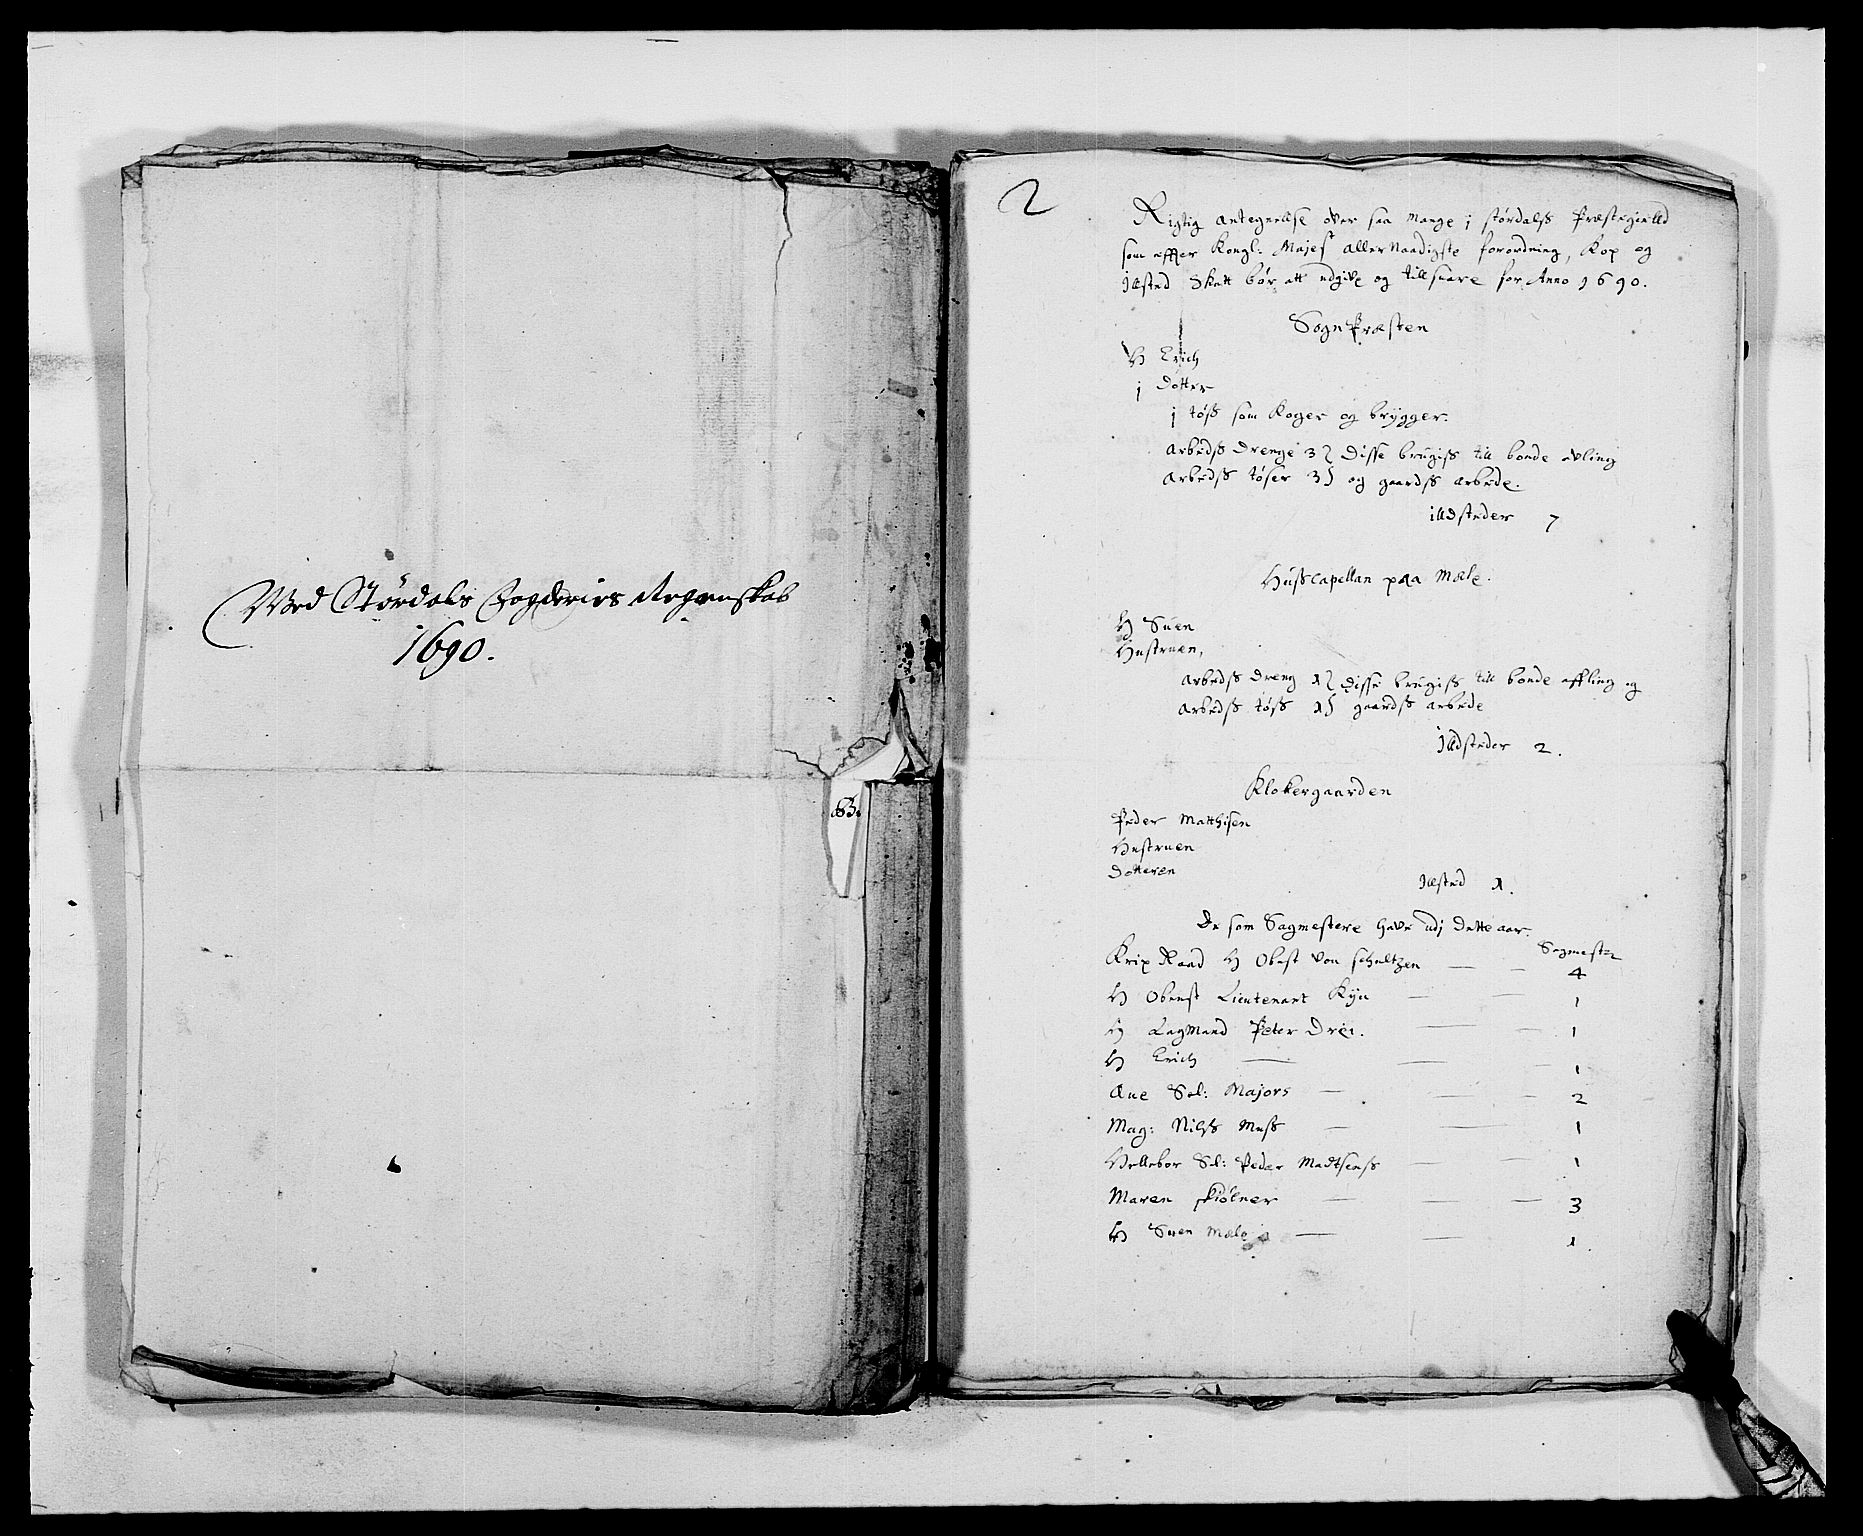 Wed Størdals Fogderies Regenskab
1690.
2
Rigtig antegnelse ofver saa mange i størdalss Præstegield
som effter Kongl: Majest allernaadigste forordning, Kop og
Ildsted Skatt bør att udgive og tillsuare for Anno 1690.
SognPræsten
H Erich
j Dotter
j tøss som Koger og brygger.
Arbedss Drenge 3 Disse brugiss till bonde avling
Arbedss tøser 3 og gaardss arbede.
illdsteder 7
Husscapellan paa Mæle.
H Suen
Hustruen,
Arbedss dreng 1 disse brugiss till bonde affling og
Arbedss tøss 1 gaardss arbede
Illdsteder 2.
Klokergaarden
Peder Matthisen
Hustruen
Dotteren
Ildsted 1.
De som Sagmestere hafve udj Dette aar.
Sagmester
Krix Raad H Obest von schultzen 4
H Oberst Lieutenant Kÿn 1
H Lagmand Peter Dreÿ. 1
H Erich 1
Ane Sal: Majors 2
Mag: Nilss Muss 1
Hellebor Sl: Peder Madtsenss 1
Maren skiølner 3
H Suen Mæle 1.